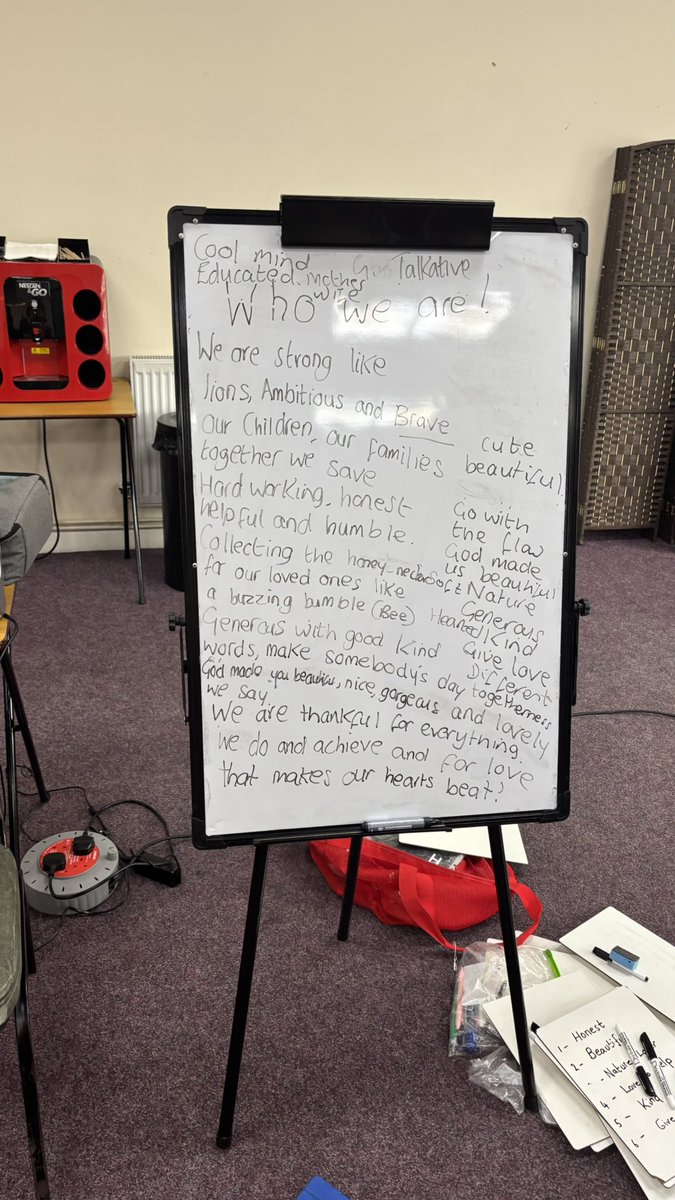 Cool mind
Talkative
Educated. mother
wife
Who we are!
We are strong like
lions, Ambitious and Brave
Our Children, our families
together we save
Hard working, honest
helpful and humble.
Collecting the honey-nectar
for our loved ones like
a buzzing bumble (Bee)
Generous with good kind
words, make somebody's day
God made you beautiful, nice, gorgeous and lovely
we say.
We are thankful for everything
we do and achieve and for love
that makes our hearts beat!
cute
beautiful.
Go with
the flow
God made
us beautiful
Soft Nature
Hearted
Generous
Kind
Give love
Different
togetherness
NESCAFÉ
&GO
1- Honest
2- Beautiful
Nature
4- Love
Help
5- Kind
6- Give